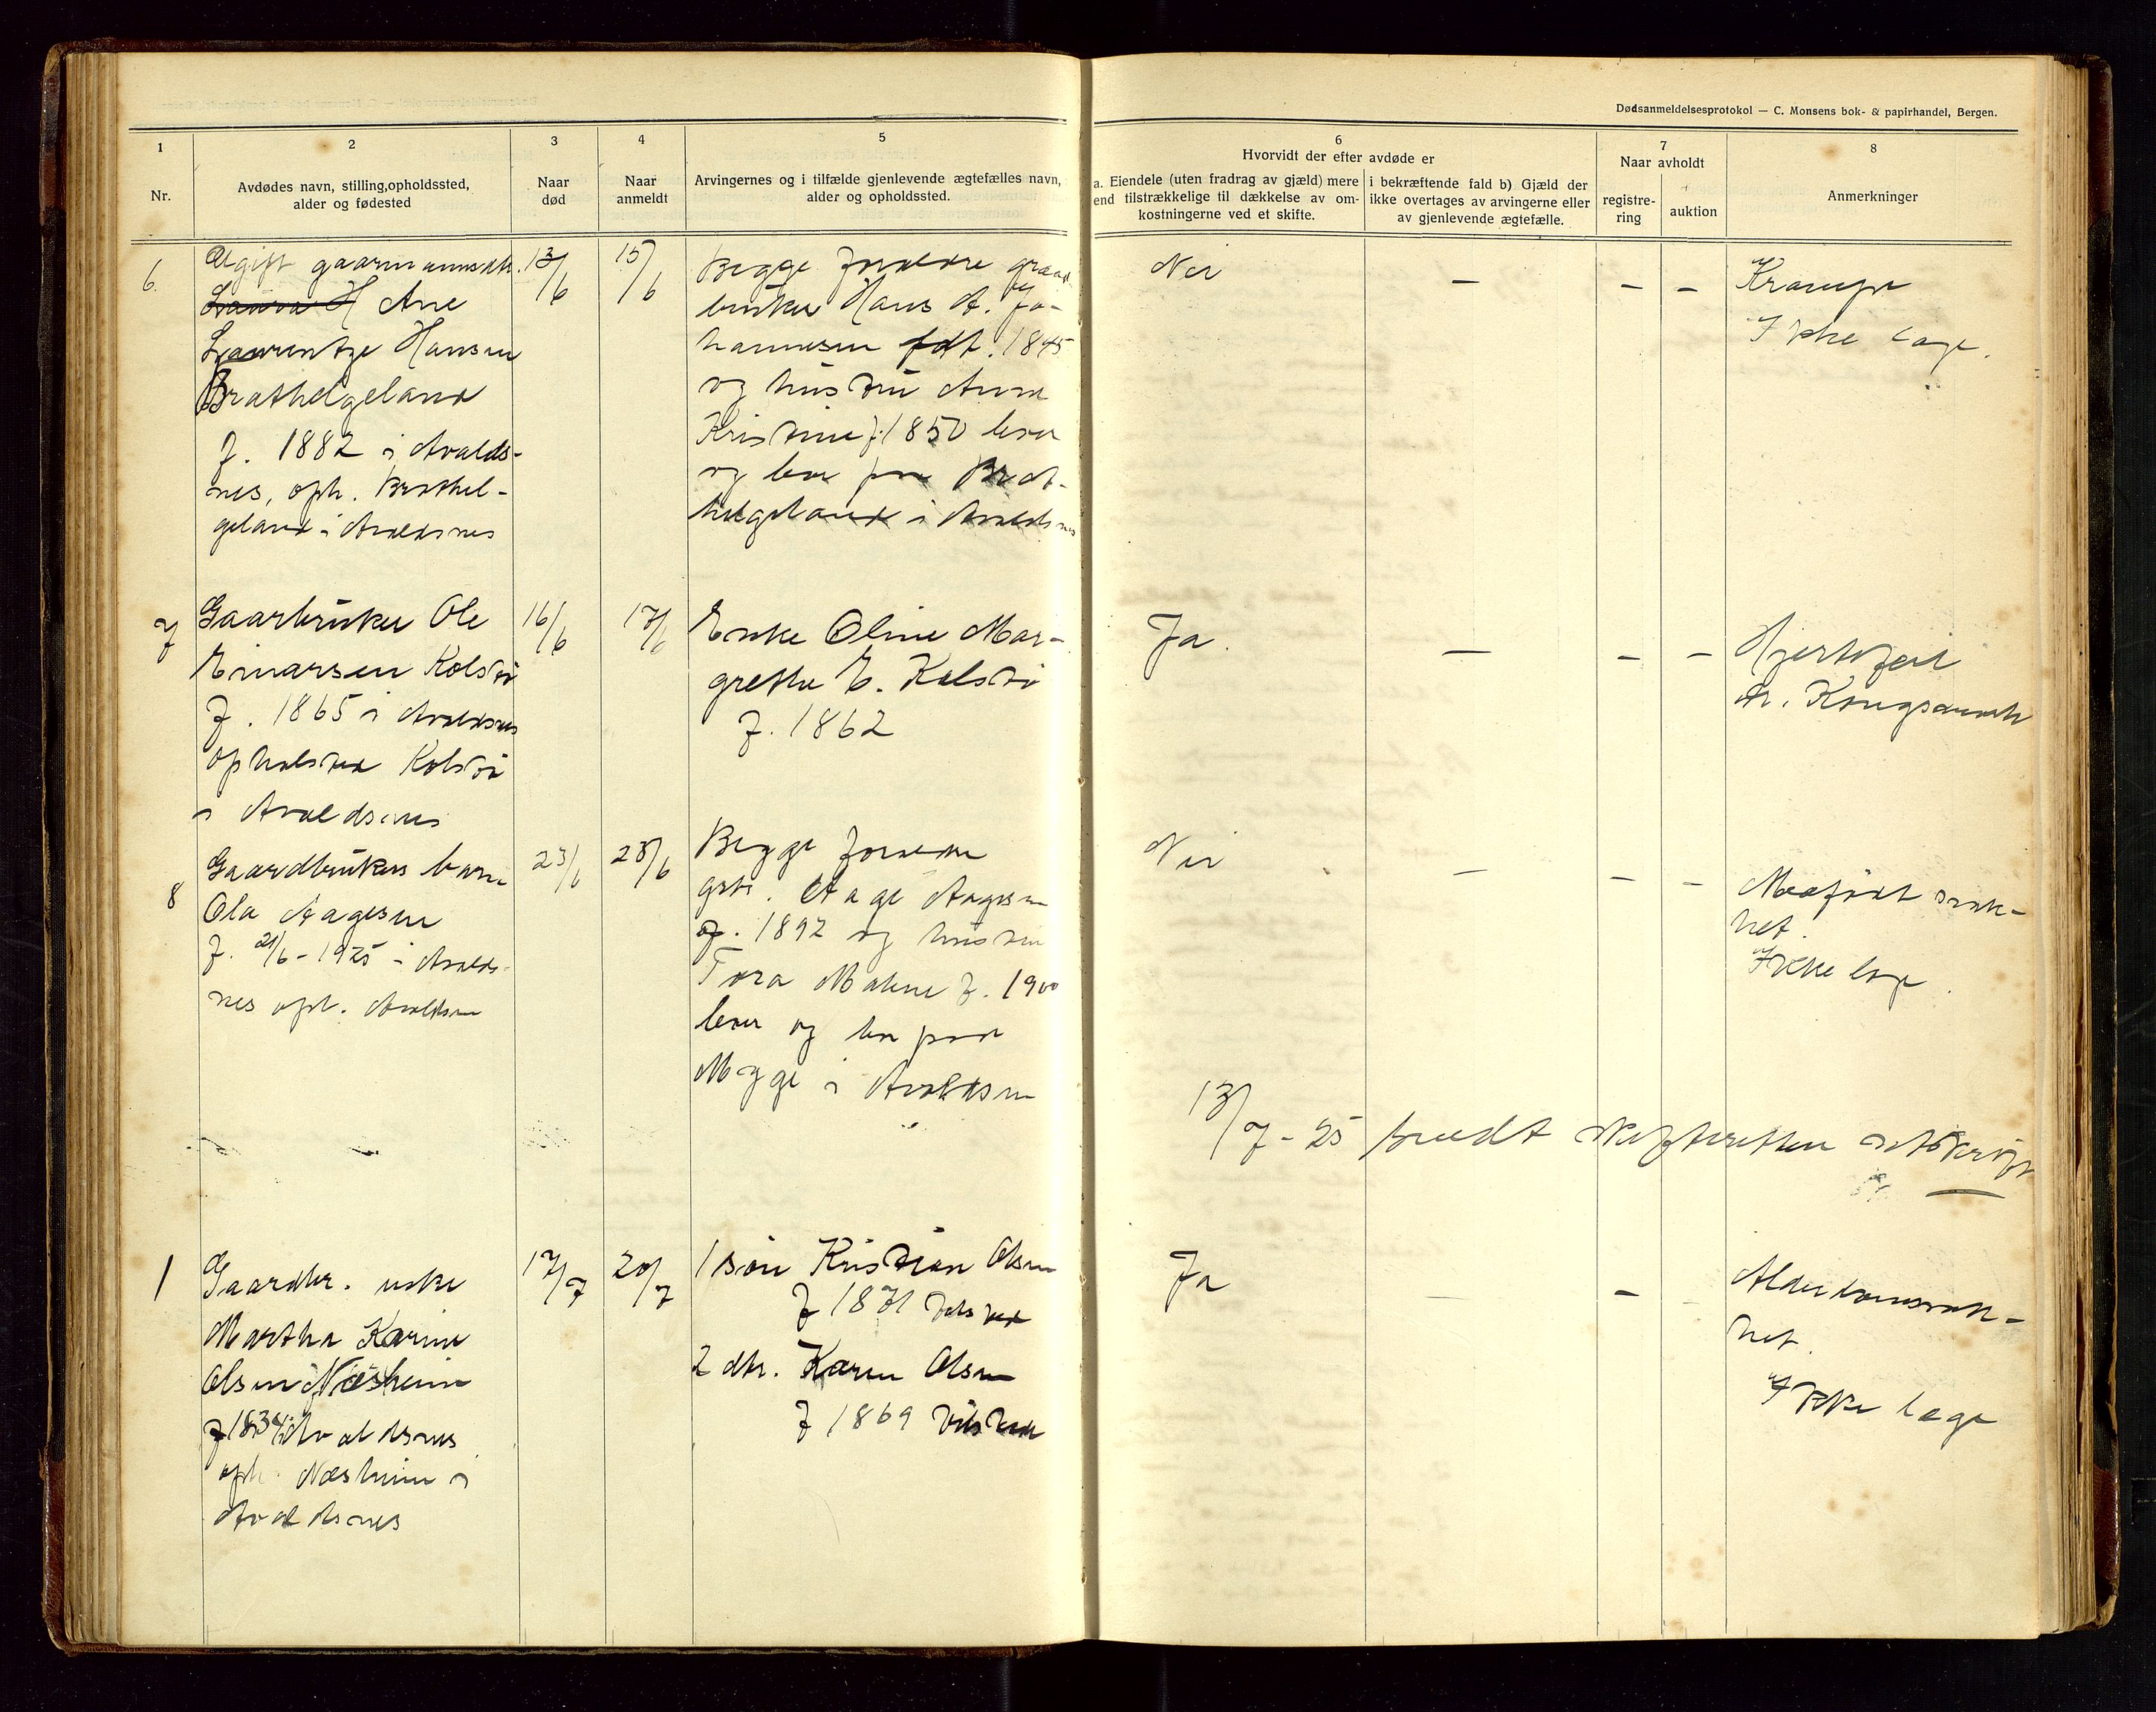 Dødsanmeldelsesprotokol — C. Monsens bok- & papirhandel, Bergen.
1
Nr.
2
Avdødes navn, stilling,opholdssted,
alder og fødested
3
Naar
død
4
Naar
anmeldt
5
Arvingernes og i tilfælde gjenlevende ægtefælles navn,
alder og opholdssted.
6
Hvorvidt der efter avdøde er
a. Eiendele (uten fradrag av gjæld) mere
end tilstrækkelige til dækkelse av om-
kostningerne ved et skifte.
i bekræftende fald b) Gjæld der
ikke overtages av arvingerne eller
av gjenlevende ægtefælle.
7
Naar avholdt
registre-
ring
auktion
8
Anmerkninger
6.
Ugift gaarmannsdtr.
Laura H Ane
Laurentze Hansen
Brathelgeland
f. 1882 i Avalds-
nes, oph. Brathel-
geland i Avaldsnes
13/6
15/6
Begge forældre
bruker Hans A. Jo-
hannesen født. 1845
og hustru Anna
Kristine f. 1850 lever
og bor paa Brat-
helgeland i Avaldsnes
Nei
—
– –
Krampe
Ikke læge.
7
Gaarbruker Ole
Einarsen Kolstø
f. 1865 i Avaldsnes
opholsted Kolstø
i Avaldsnes
16/6
17/6
Enke Oline Mar-
grethe E. Kolstø
f. 1862
Ja.
—
– –
Hjertefeil
dr. Kongsvanh
8
Gaardbrukers barn
Ola Aagesen
f. 21/6 - 1925 i Avalds-
nes oph. Avaldsnes
23/6
25/6
Begge forældre
gbr. Aage Aagesen
f. 1892 og hustru
Tora Malene f. 1900
lever og bor paa
Mygge i Avaldsnes
Nei
–
– –
Medfødt svak-
het.
Ikke læge.
13/7 - 25 sendt skifteretten utskrift
1
Gaardbr. enke
Martha Karine
Olsen Næsheim
f 1834 i Avaldsnes
oph. Næsheim i
Avaldsnes
17/7
20/7
1 søn Kristian Olsen
f 1871
2 dtr. Karen Olsen
f 1869
Ja
–
– –
Alderdomssvak-
het.
Ikke læge